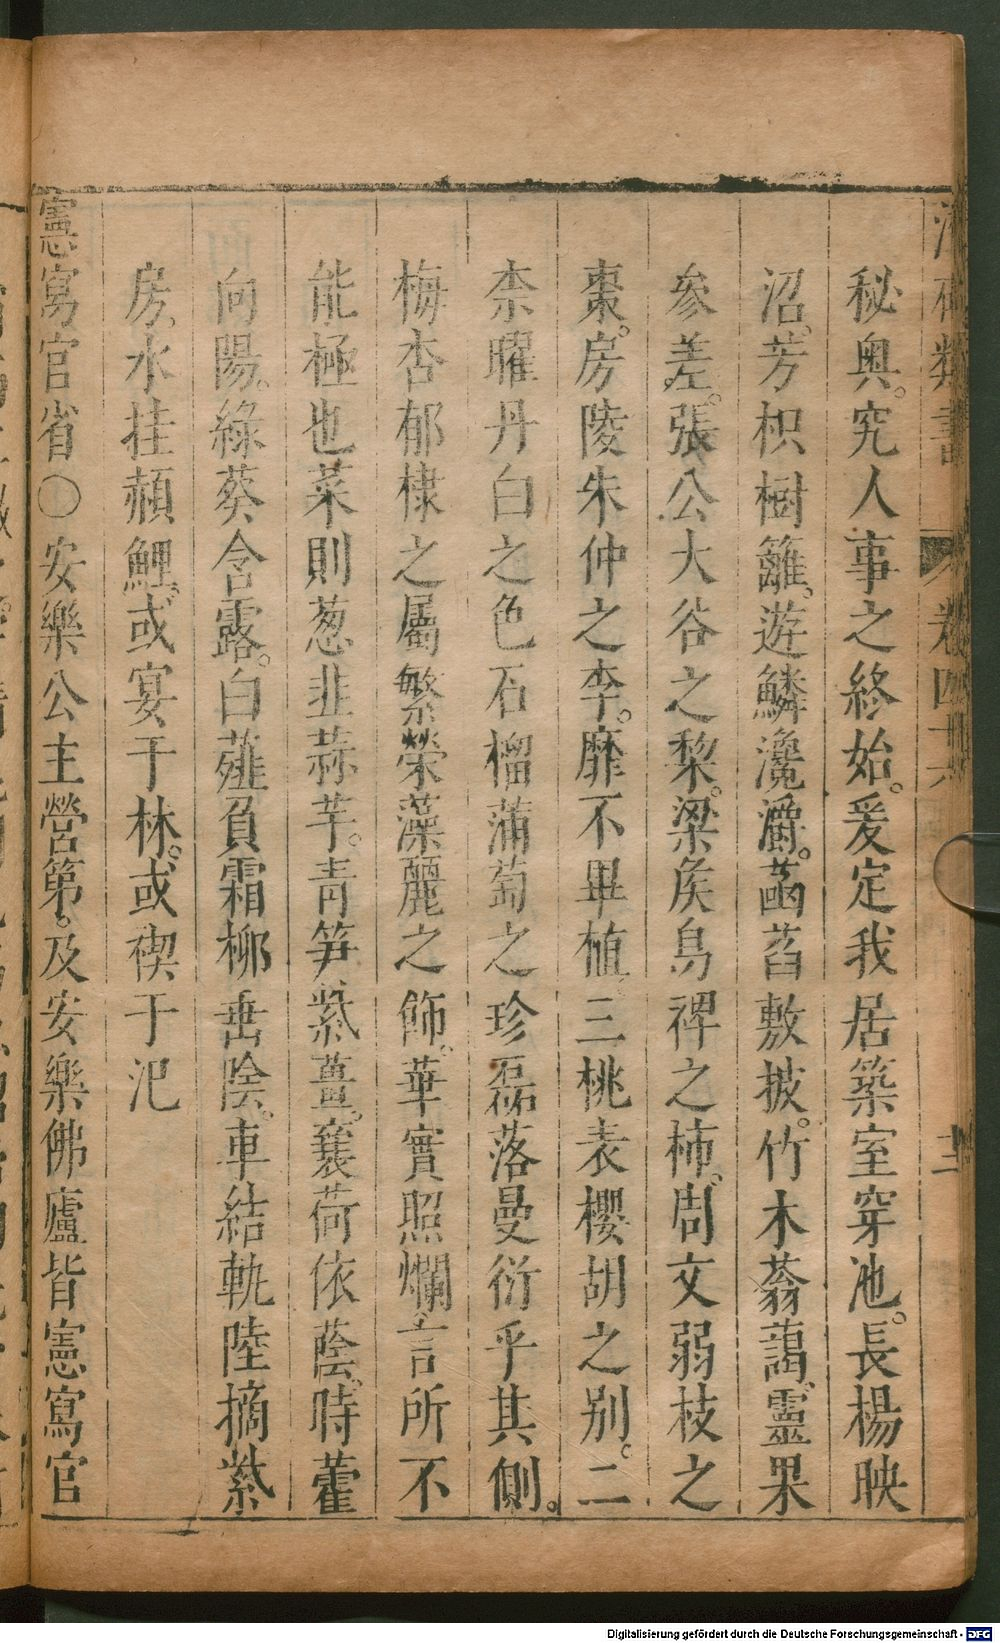 卷四十六
秘奧。究人事之終始。爰定我居築室穿池。長楊映
沼。芳枳樹籬。遊鱗瀺灂。菡萏敷披。竹木蓊藹。靈果
參差。張公大谷之梨。梁侯烏椑之柿。周文弱枝之
棗。房陵朱仲之李。靡不畢植三桃表櫻胡之别。二
柰曜丹白之色石榴蒲萄之珍磊落曼衍乎其側。
梅杏郁棣之屬繁榮藻麗之飾。華實照爛言所不
能極也菜則葱韭蒜芋。青笋紫薑。蘘荷依蔭。時藿
向陽。綠葵含露。白薤負霜柳垂陰。車結軌陸摘紫
房。水挂頳鯉。或宴于林。或禊于汜
憲寫官省〇安樂公主營第。及安樂佛廬皆憲寫官
Digitalisierung gefördert durch die Deutsche Forschungsgemeinschaft - DFG